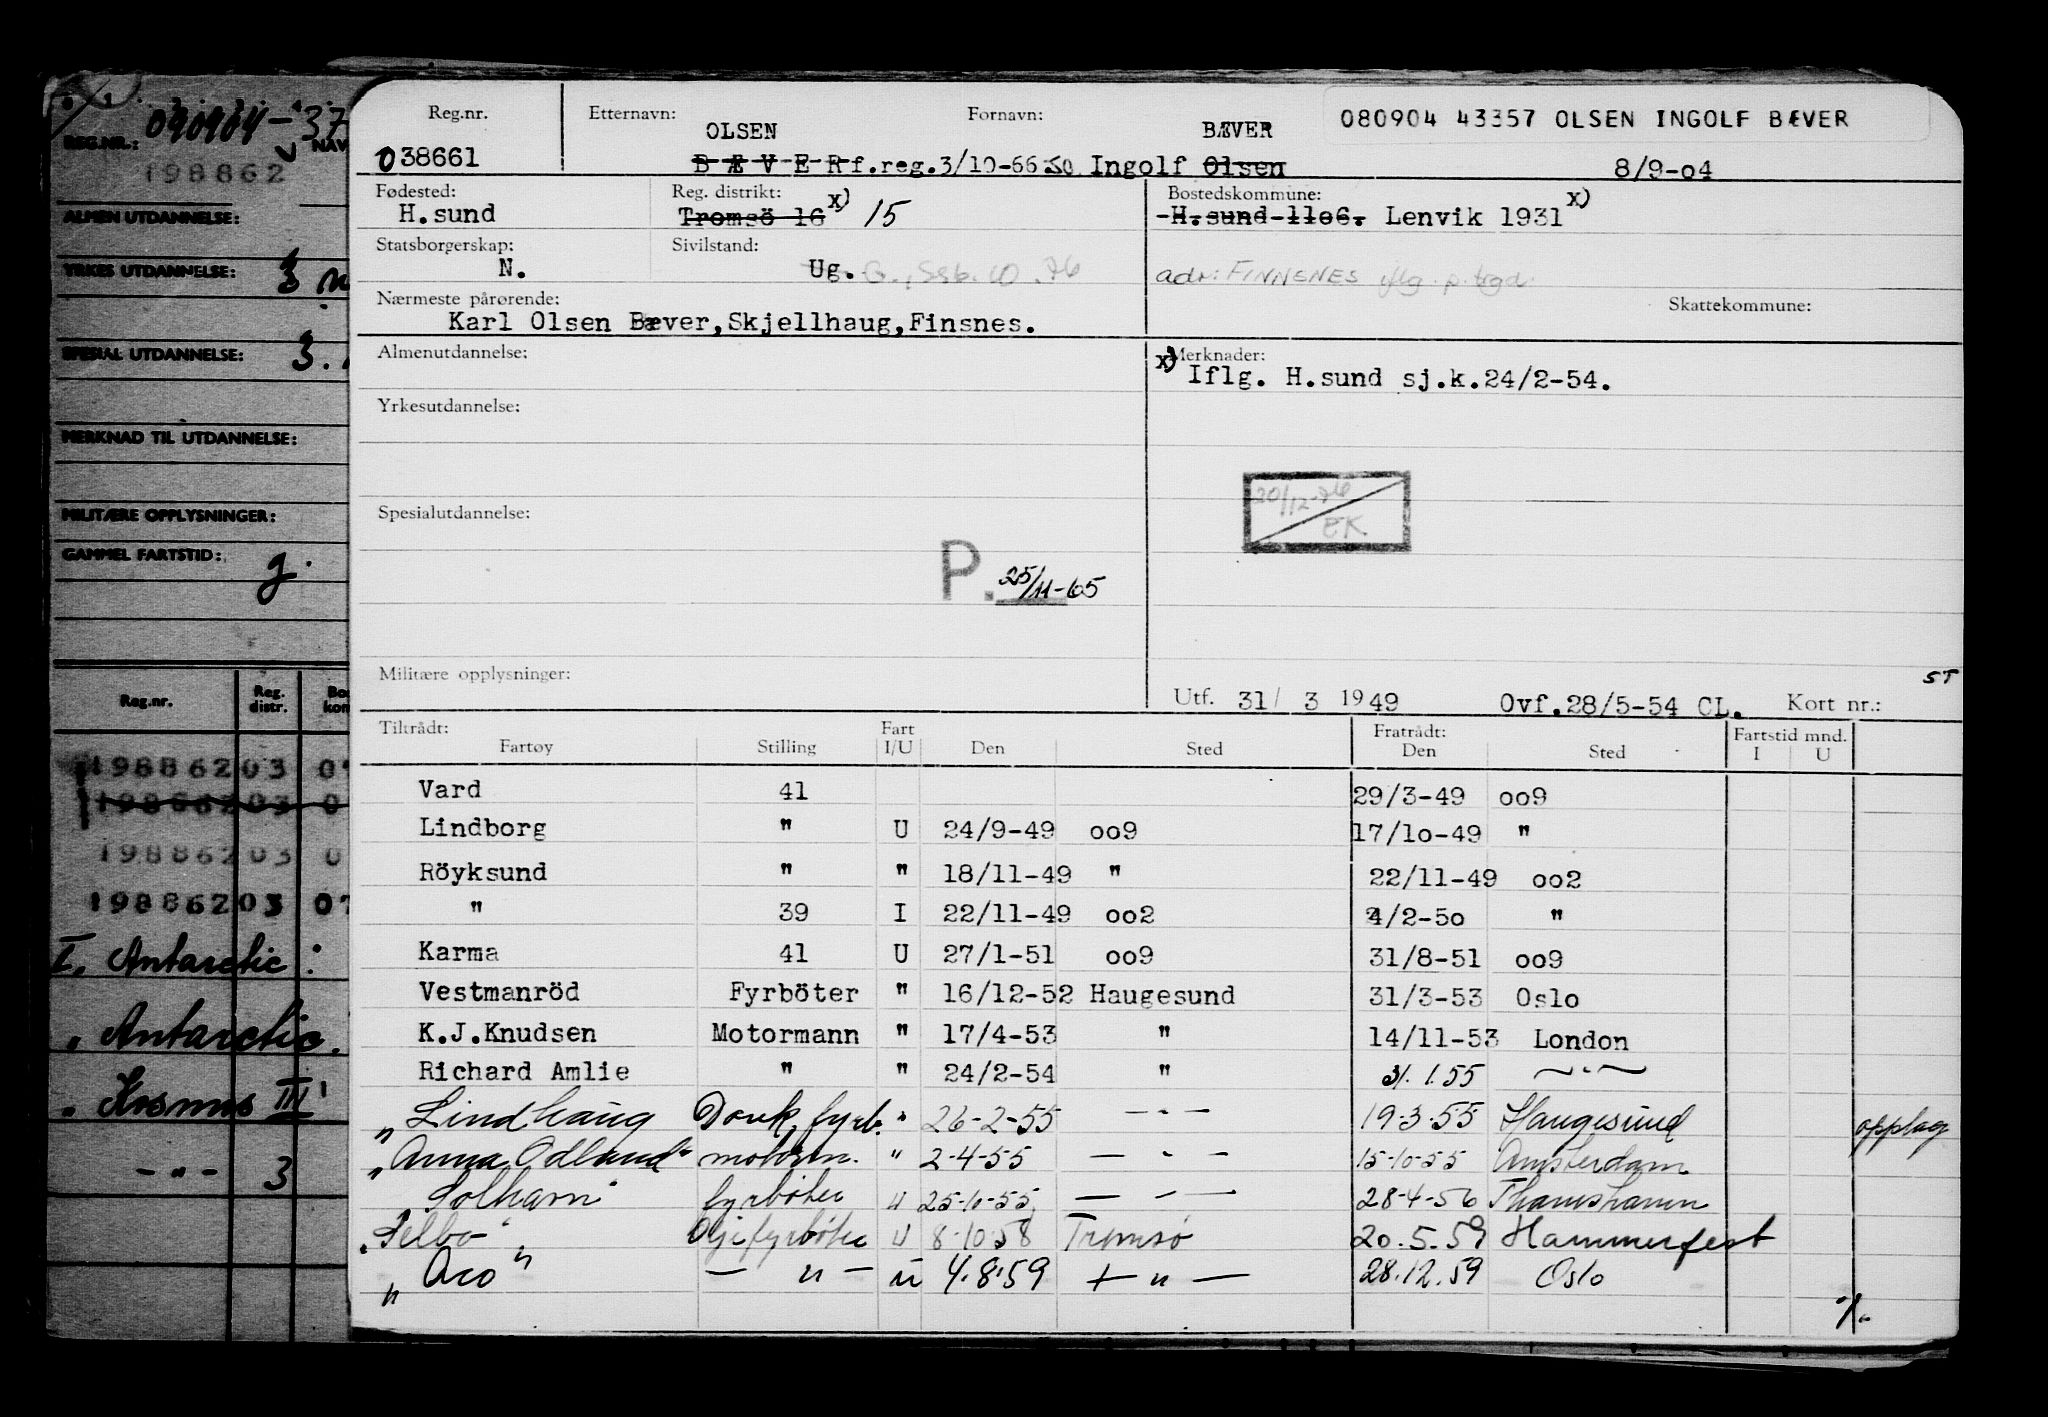 REG.NR.: 090904-37
NAV
198862
ALMEN UTDANNELSE:
YRKES UTDANNELSE: 3
SPESIAL UTDANNELSE: 3.
MERKNAD TIL UTDANNELSE:
MILITÆRE OPPLYSNINGER:
GAMMEL FARTSTID: g.
Reg.nr. Reg. distr.
198862 03 0
198862 03 0
198862 03 0
198862 03 07
I. Antarctic
" Antarctic.
" Kosmos III
-"- 3
Reg.nr. Etternavn: Fornavn: 080904 43357 OLSEN INGOLF BÆVER
OLSEN BÆVER
038661 BÆVER f.reg.3/10-66 Ingolf Olsen 8/9-o4
Fødested: Reg. distrikt: Bostedskommune:
H.sund Tromsö 16 x) 15 H.sund 11o6. Lenvik 1931 x)
Statsborgerskap: Sivilstand:
N. Ug. adr: FINNSNES iflg. p.
Nærmeste pårørende: Skattekommune:
Karl Olsen Bæver,Skjellhaug,Finsnes.
Almenutdannelse: x) Merknader:
Iflg. H.sund sj.k.24/2-54.
Yrkesutdannelse:
20/12-76
EK
Spesialutdannelse:
P. 25/11-65
Militære opplysninger:
ST
Utf. 31/ 3 1949 Ovf.28/5-54 CL. Kort nr.:
Tiltrådt: Fart Fratrådt: Fartstid mnd.
Fartøy Stilling I/U Den Sted Den Sted I U
Vard 41 29/3-49 oo9
Lindborg " U 24/9-49 oo9 17/1o-49 "
Röyksund " " 18/11-49 " 22/11-49 oo2
" 39 I 22/11-49 oo2 4/2-5o "
Karma 41 U 27/1-51 oo9 31/8-51 oo9
Vestmanröd Fyrböter " 16/12-52 Haugesund 31/3-53 Oslo
K.J.Knudsen Motormann " 17/4-53 " 14/11-53 London
Richard Amlie " " 24/2-54 " 31.1.55 -"-
"Lindhaug Donk.fyrb. " 26-2-55 -"- 19.3.55 Haugesund opplag
"Anna Odland" motorm. " 2-4-55 -"- 15-10-55 Amsterdam
"Solhavn" fyrbøter " 25-10-55 -"- 28-4-56 Thamshavn
"Selbo" Oljefyrbøter U 8-10-58 Tromsø 20.5.59 Hammerfest
"Aco" -"- u 4.8.59 -"- 28.12.59 Oslo